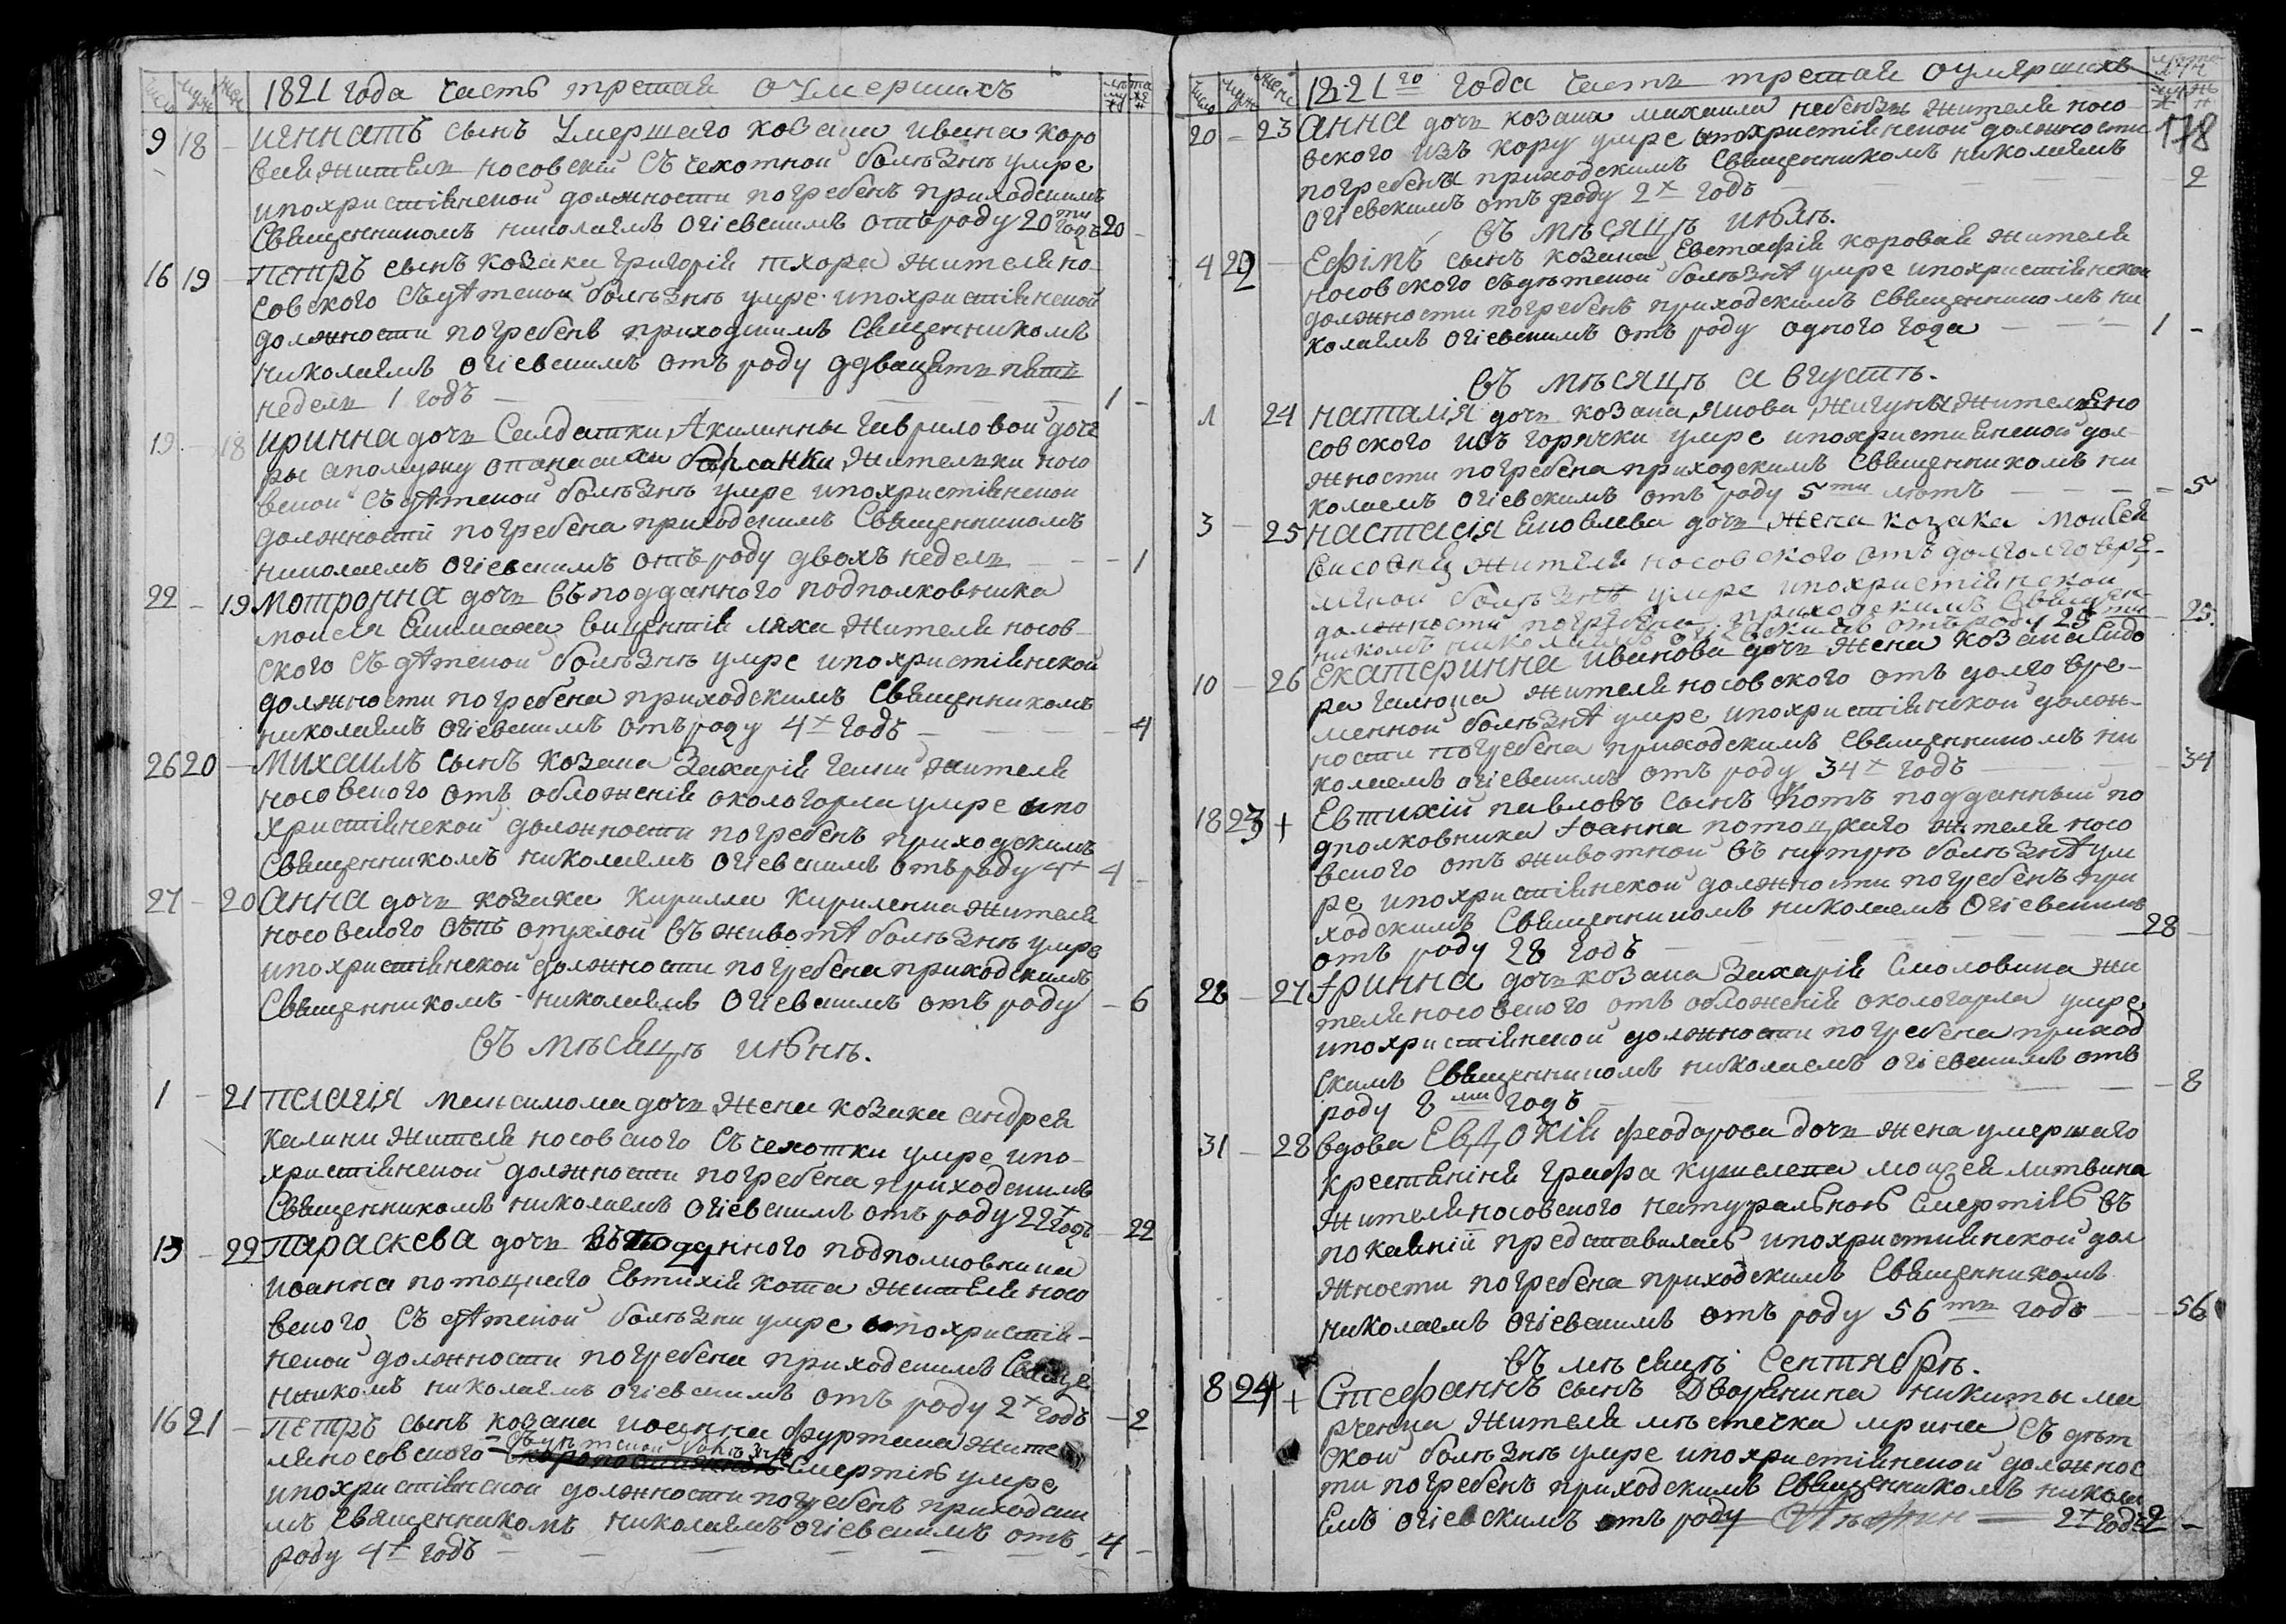 число муж жен 1821 года часть третая о умершихъ лѣта му же
9 18 – игннатъ сынъ умершаго козака ивана коро
вая жителя носовскій съ чехотной болѣзнѣ умре
ипохристіянской должности погребенъ приходскимъ
священникомъ николаемъ огіевскимъ отъ роду 20ти годъ 20 –
16 19 – петръ сынъ козака григорія тхора жителя но
совского съ дѣтской болѣзнѣ умре ипохристіянской
должности погребенъ приходскимъ священникомъ
николаемъ огіевскимъ отъ роду двацять пять
недель 1 годъ 1 –
19 – 18 иринна дочь салдатки Акилинны гавриловой доче
ры апомужу опанаси жителки носо
вской съ дѣтской болѣзнѣ умре ипохристіянской
должности погребена приходскимъ священникомъ
николаемъ огіевскимъ отъ роду двохъ недель – 1
22 – 19 мотронна дочь въ подданного подполковника
моисея вицентія ляха жителя носов
ского съ дѣтской болѣзнѣ умре ипохристіянской
должности погребена приходскимъ священникомъ
николаемъ огіевскимъ отъ роду 4х годъ – 4
26 20 – михаилъ сынъ козака захарія галки жителя
носовского отъ обложенія окологорла умре ипо
христіянской должности погребенъ приходскимъ
священникомъ николаемъ огіевскимъ отъ роду 4х 4 –
27 – 20 анна дочь козака кирилла кириленка жителя
носовского отъ опухлой въ животѣ болѣзнѣ умре
ипохристіянской должности погребена приходскимъ
священникомъ николаемъ огіевскимъ отъ роду – 6
въ мѣсяцѣ июнѣ.
1 – 21 пелагія максимома дочь жена козака андрея
калины жителя носовского съ чехотки умре ипо
христіянской должности погребена приходскимъ
священникомъ николаемъ огіевскимъ отъ роду 22х годъ – 22
13 – 22 параскева дочь въ подданного подполковника
иоанна потоцкаго Евтихія кота жителя носо
вского съ дѣтской болѣзни умре ипохристія
нской должности погребена приходскимъ свяще
нникомъ николаемъ огіевскимъ отъ роду 2х годъ – 2
16 21 – петръ сынъ козака иоанна фуртака жите
ля носовского съ дѣтской болѣзнѣ смертію умре
ипохристіянской должности погребенъ приходски
мъ священникомъ николаемъ огіевскимъ отъ
роду 4х годъ 4 –
число муж жен 1821го года часть третая о умершихъ лѣта
178
20 – 23 анна дочь козака михаила небенза жителя носо
вского изъ кору умре ипохристіянской должности
погребена приходскимъ священникомъ николаемъ
огіевскимъ отъ роду 2х годъ – 2
въ мѣсяцѣ июлѣ.
4 22 – Ефімъ сынъ козака Евстафія коровая жителя
носовского съ дѣтской болѣзнѣ умре ипохристіянской
должности погребенъ приходскимъ священникомъ ни
колаемъ огіевскимъ отъ роду одного года 1 –
въ мѣсяцѣ августѣ.
1 24 наталія дочь козака якова жигуны жителя но
совского изъ горячки умре ипохристіянской дол
жности погребена приходскимъ священникомъ ни
колаемъ огіевскимъ отъ роду 5ти лѣтъ – 5
3 – 25 настасія яковлева дочь жена козака моисея
жителя носовского отъ долголговре
менной болѣзнѣ умре ипохристіянской
должности погребена приходскимъ священ
никомъ николаемъ огіевскимъ отъ роду 25ти – 25
10 – 26 Екатеринна иванова дочь жена козака сидо
ра галюка жителя носовского отъ долговре
менной болѣзнѣ умре ипохристіянской долж
ности погребена приходскимъ священникомъ ни
колаемъ огіевскимъ отъ роду 34х годъ – 34
18 23 + Евтихій павловъ сынъ котъ подданный по
дполковника іоанна потоцкаго жителя носо
вского отъ животной въ нутрѣ болѣзнѣ ум
ре ипохристіянской должности погребенъ при
ходскимъ священникомъ николаемъ огіевскимъ
отъ роду 28 годъ 28 –
28 – 27 іринна дочь козака захарія смоловика жи
теля носовского отъ обложенія окологорла умре
ипохристіянской должности погребена приход
скимъ священникомъ николаемъ огіевскимъ отъ
роду 8ми годъ – 8
31 – 28 вдова Евдокія феодорова дочь жена умершаго
крестянина графа кушелева моисея литвина
жителя носовского натуральною смертію въ
покаяніи представилась ипохристіянской дол
жности погребена приходскимъ священникомъ
николаемъ огіевскимъ отъ роду 56ть годъ – 56
въ мѣсяцѣ Сентябрѣ.
8 24 + Стефаннъ сынъ дворянина никиты ма
рченка жителя мѣстечка мрина съ дѣт
ской болѣзнѣ умре ипохристіянской должнос
ти погребенъ приходскимъ священникомъ никола
емъ огіевскимъ отъ роду 2х годъ 2 –